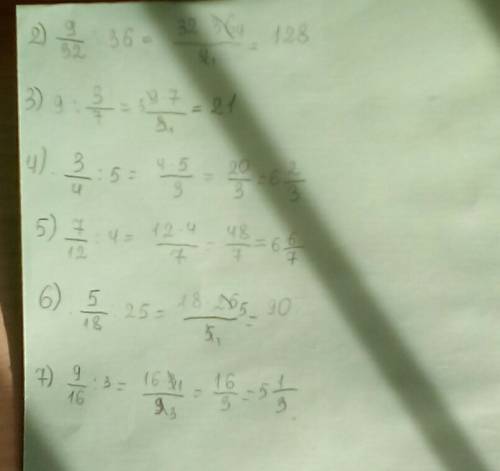 2) 9/32 : 36 = 32·36 4/9 1 = 128
3) 9 : 3/7 = 3 9·7/3 1 = 21
4) 3/4 : 5 = 4·5/3 = 20/3 = 6 2/3
5) 7/12 : 4 = 12·4/7 = 48/7 = 6 6/7
6) 5/18 : 25 = 18·25 5/5 1 = 90
7) 9/16 : 3 = 16·3 1/9 3 = 16/3 = 5 1/3